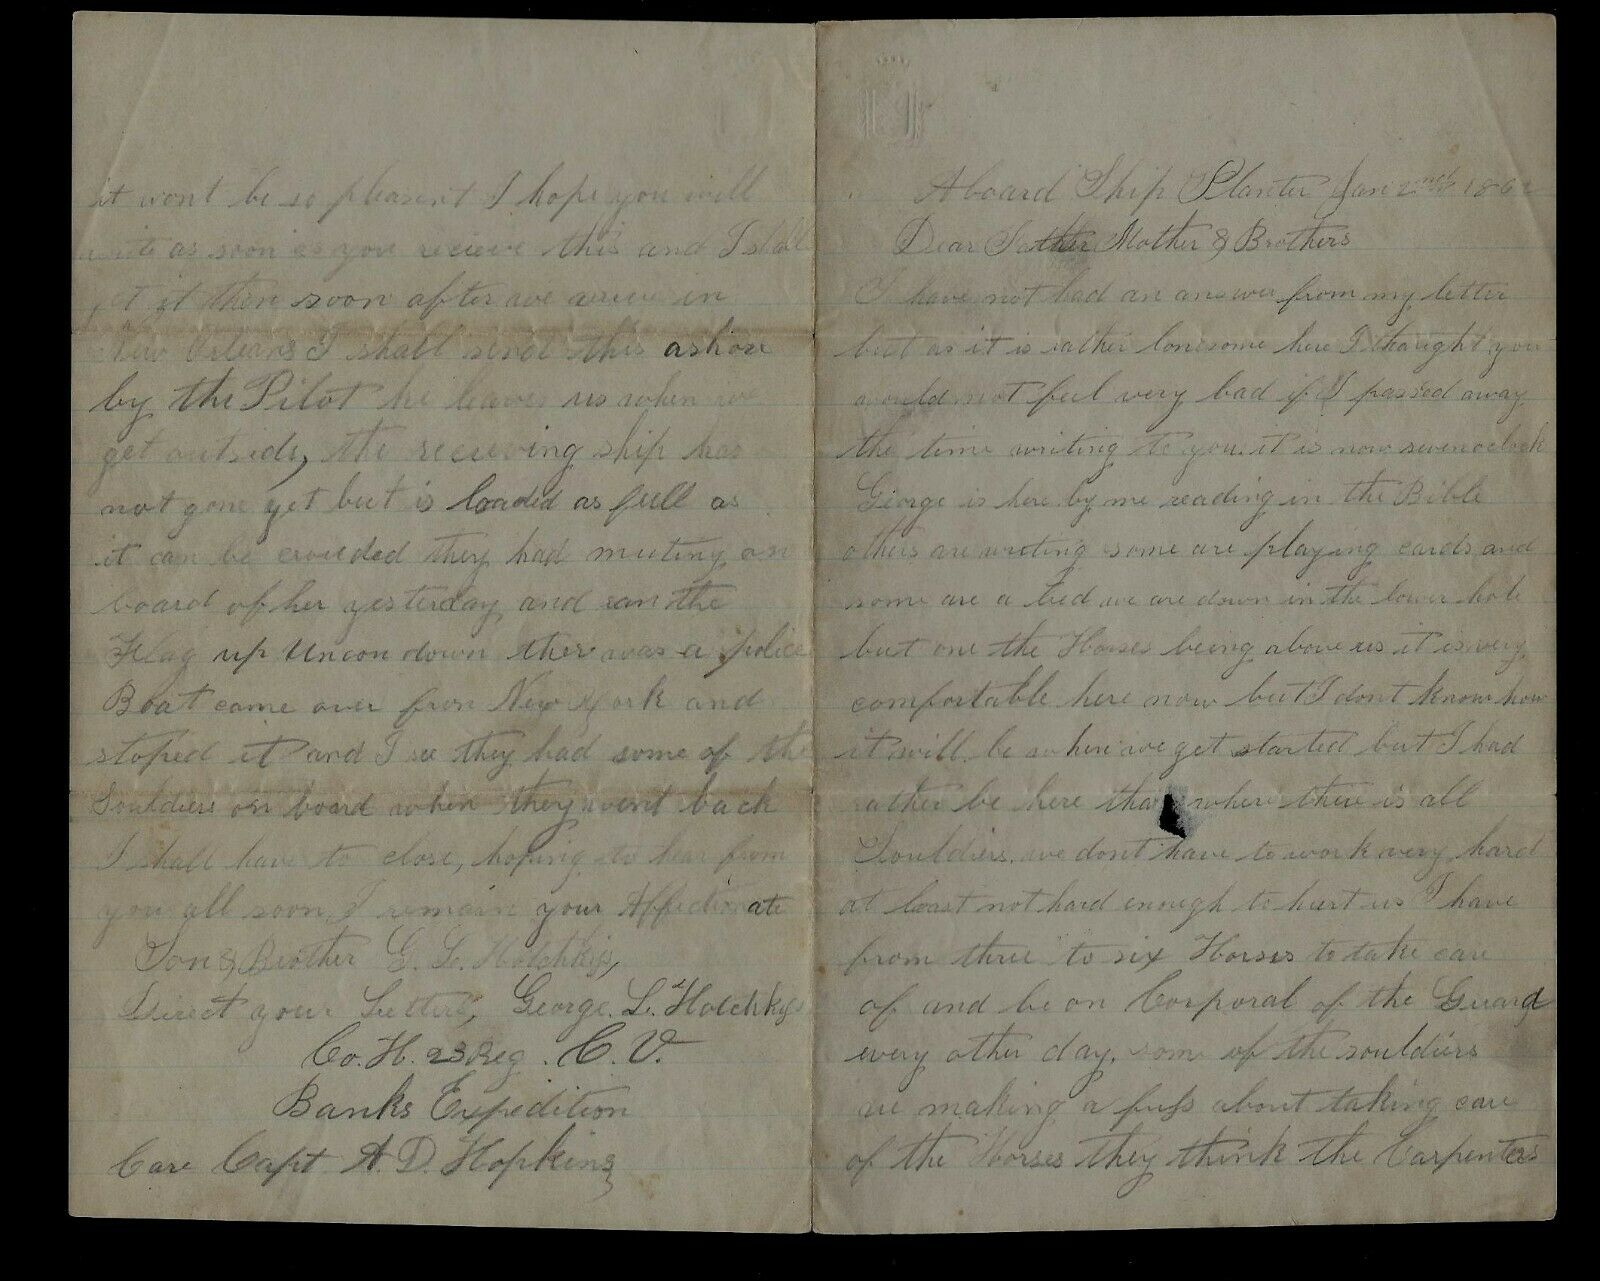 Aboard Ship Planter Jan 2nd 186
Dear Father Mother & Brothers
I have not had an answer from my letter
but as it is rather lonesome here I thaught you
would not feel very bad if I passed away
the time writing to you. it is now seven oclock
George is here by me reading in the Bible
others are writing some are playing cards and
some are a bed we are down in the lower hole
but one the Horses being above us it is very
comfortable here now but I dont know how
it will be when we get started but I had
rather be here than where there is all
Souldiers. we dont have to work very hard
at least not hard enough to hurt us I have
from three to six Horses to take care
of and be on Corporal of the Guard
every other day, some of the souldiers
are making a fuss about taking care
of the Horses they think the Carpenters
it wont be so pleasent I hope you will
write as soon as you recieve this and I shall
get it then soon after we arive in
New Orleans I shall send this ashore
by the Pilot he leaves us when we
get outside, the recieving ship has
not gone yet but is loaded as full as
it can be crouded they had meeting on
board of her yesterday and ran the
Flag up Uncon down ther was a police
Boat came over from New York and
stoped it and I see they had some of the
Souldiers on board when they went back
I shall have to close, hoping to hear from
you all soon I remain your Affectionate
Son & Brother G. L. Hotchkiss,
Direct your Letters, George. L. Hotchkiss
Co. H. 23 Reg. C. V.
Banks Expedition
Care Capt A. D. Hopkins